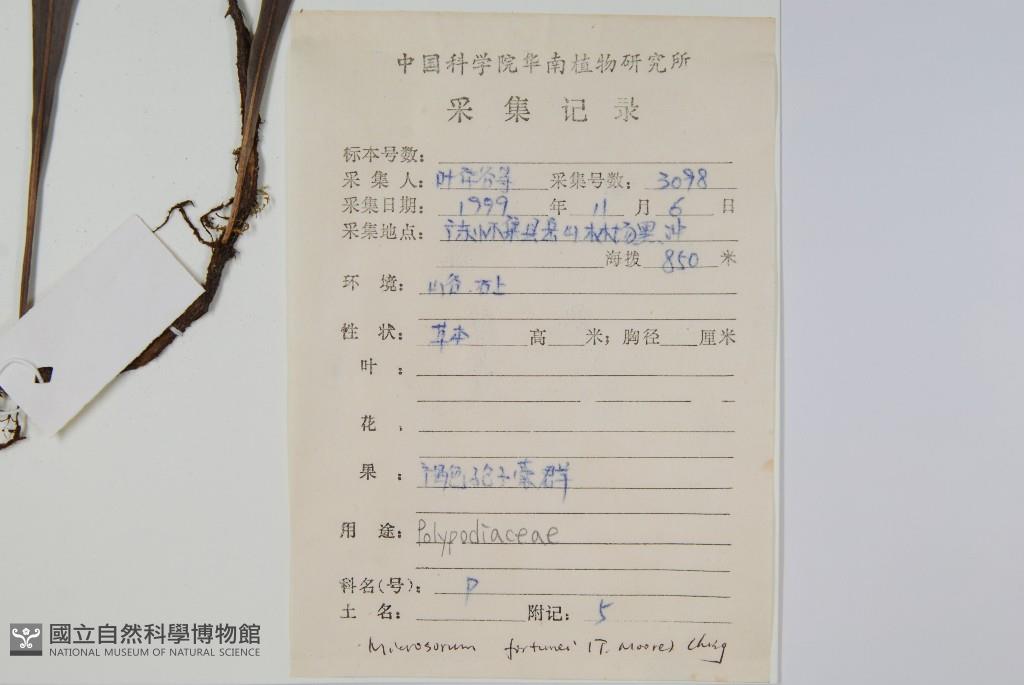 中国科学院华南植物研究所
采集记录
标本号数:
采集人: 叶华谷等 采集号数: 3098
采集日期: 1999 年 11 月 6 日
采集地点: 广东
海拨 850 米
环境: 山谷.石上
性状: 草本 高 米; 胸径 厘米
叶:
花:
果: 褐色孢子囊群
用途: Polypodiaceae
科名(号): P
土名: 附记: 5
Microsorum fortunei (T. Moore) Ching
國立自然科學博物館
NATIONAL MUSEUM OF NATURAL SCIENCE